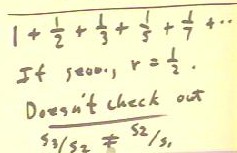 1 + 1/2 + 1/3 + 1/5 + 1/7 + ..
If geom, r = 1/2 .
Doesn't check out
s3/s2 ≠ s2/s1